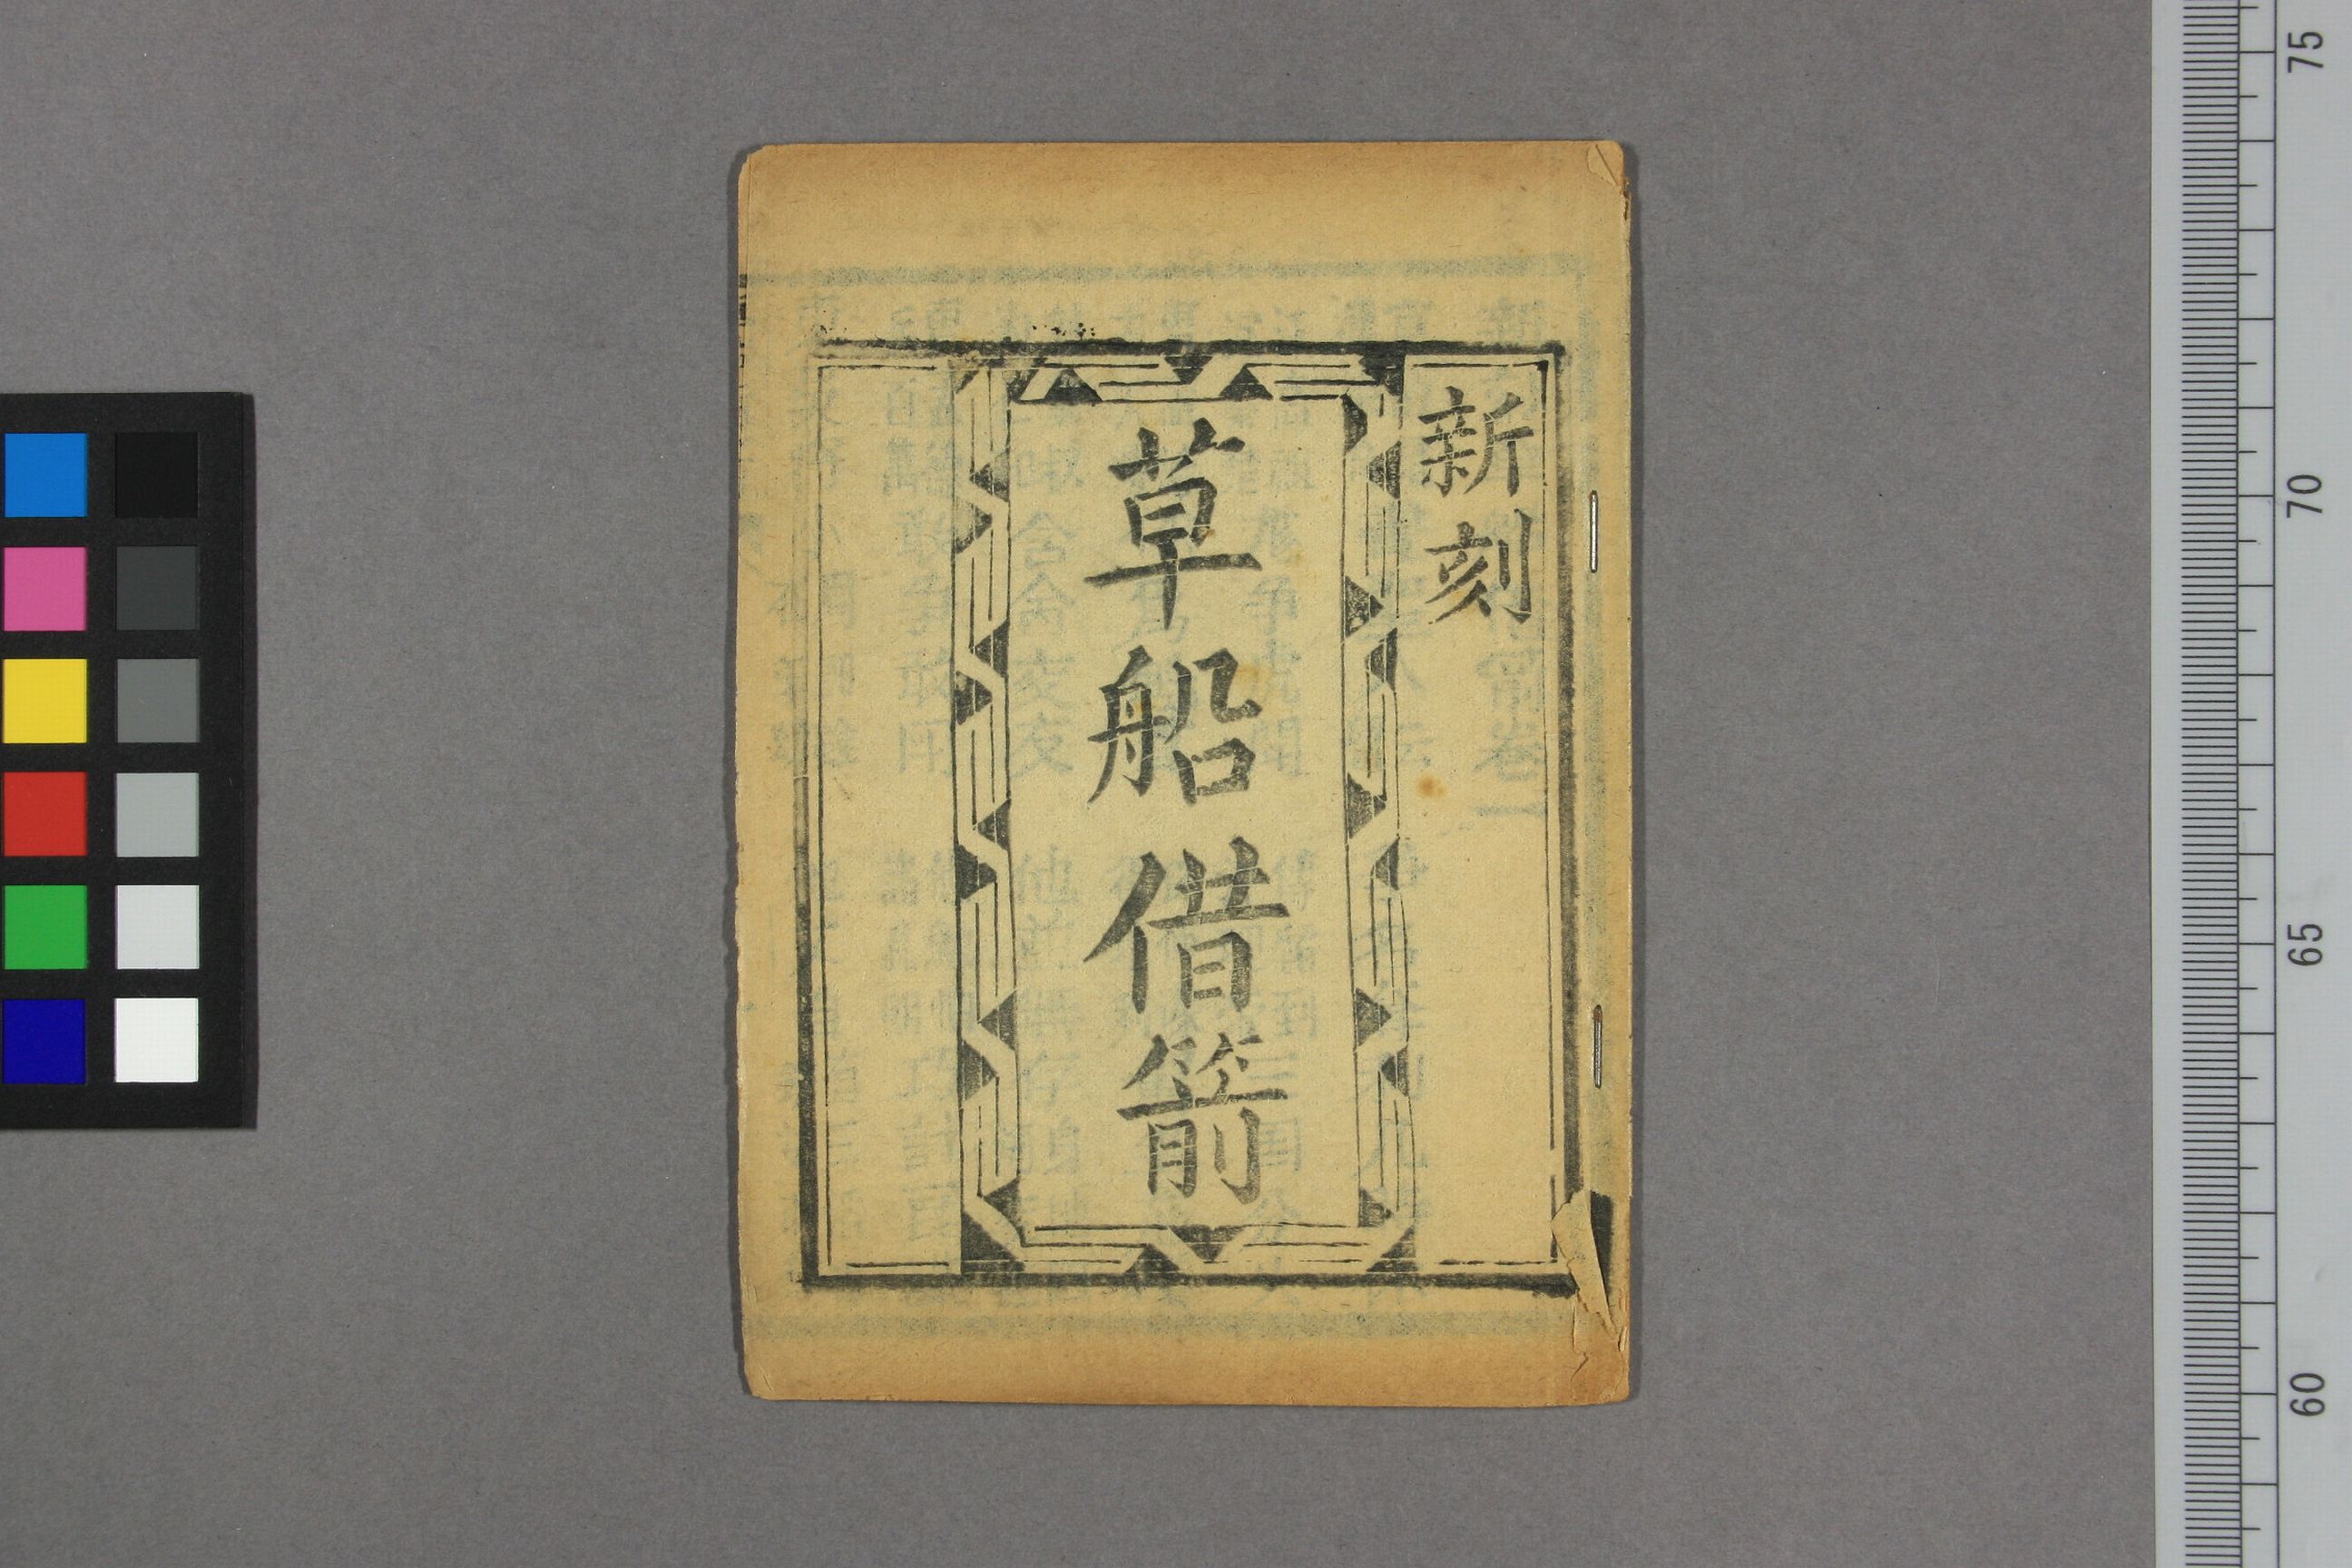 新刻
草船借箭
75
70
65
60